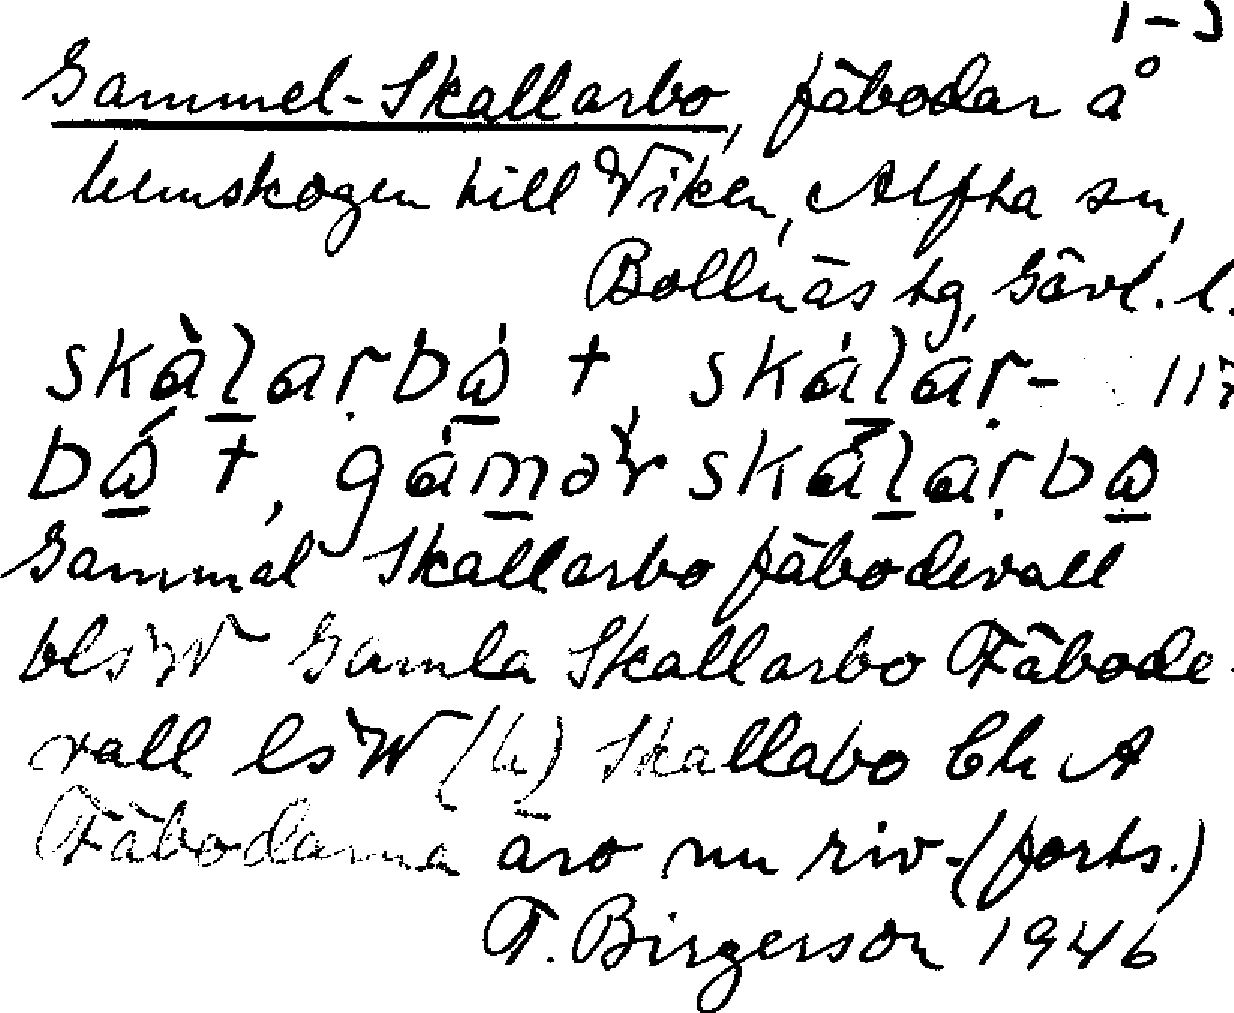 1-3
Gammel-Skallarbo, fäbodar å
hemskogen till Viken, Alfta sn,
Bollnäs tg, Gävl. l.
skàlarbó̱ +, skálár-
bó̱ +, gámər skálarbo̱
Gammal Skallarbo fäbodevall
Gamla Skallarbo Fäbode-
vall (h) Skallabo A
Fäbodarna äro nu riv-(forts.)
T. Birgerson 1946